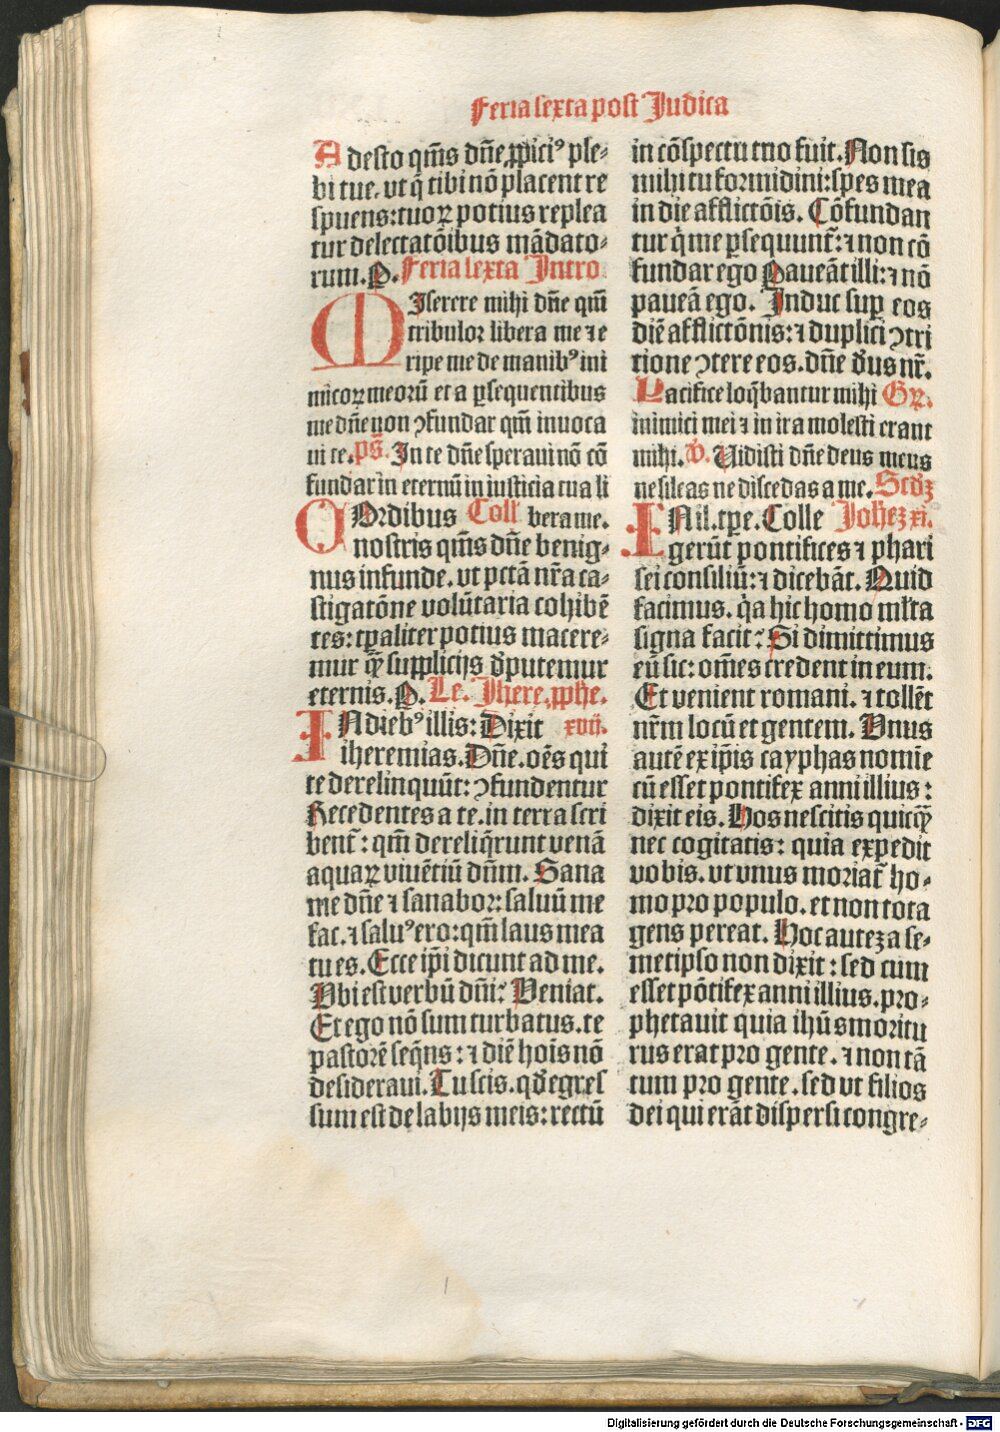 Feria sexta post Judica
Adesto qm̄s dn̄e ꝓpiciꝰ ple⸗
bi tue. vt q̄ tibi nō placent re
spuens: tuoꝝ potius replea
tur delectatōibus mādato⸗
rum. P. Feria sexta Intro
MIserere mihi dn̄e qm̄
tribulor libera me ⁊ e
ripe me de manibꝰ ini
micoꝝ meorū et a ꝑsequentibus
me dn̄e non ꝯfundar qm̄ inuoca
ui te. ps̄. In te dn̄e speraui nō cō
fundar in eternū in iusticia tua li
COrdibus Coll̄ bera me.
nostris qm̄s dn̄e benig⸗
nus infunde. vt pctā nr̄a ca⸗
stigatōne volūtaria cohibē
tes: tꝑaliter potius macere⸗
mur qꝫ̄ supplicijs d̄putemur
eternis. P. Le. Jhere. ꝓphe.
IN diebꝰ illis: Dixit xvij.
iheremias. Dn̄e. oēs qui
te derelinquūt: ꝯfundentur
Recedentes a te. in terra scri
bent᷑: qm̄ dereliq̄runt venā
aquaꝝ viuētiū dn̄m. Sana
me dn̄e ⁊ sanabor: saluū me
fac. ⁊ saluꝰ ero: qm̄ laus mea
tu es. Ecce ip̄i dicunt ad me.
Vbi est verbū dn̄i? Veniat.
Et ego nō sum turbatus. te
pastorē seq̄ns: ⁊ diē hoīs nō
desideraui. Tu scis. qd̄ egres
sum est de labijs meis: rectū
in cōspectu tuo fuit. Non sis
mihi tu formidini: spes mea
in die afflictōis. Cōfundan
tur q̇ me ꝑsequunt᷑: ⁊ non cō
fundar ego Paueāt illi: ⁊ nō
paueā ego. Induc suꝑ eos
diē afflictōnis: ⁊ duplici ꝯtri
tione ꝯtere eos. dn̄e d̄us nr̄.
Pacifice loq̄bantur mihi Gꝝ.
inimici mei ⁊ in ira molesti erant
mihi. V̄. Uidisti dn̄e deus meus
ne sileas ne discedas a me. Scdꝫ
IN il. tꝑe. Colle Johēꝫ xi.
gerūt pontifices ⁊ phari
sei consiliū: ⁊ dicebāt. Quid
facimus. q̇a hic homo ml̄ta
signa facit? Si dimittimus
eū sic: om̄es credent in eum.
Et venient romani. ⁊ tollēt
nr̄m locū et gentem. Vnus
autē ex ip̄is cayphas nomīe
cū esset pontifex anni illius:
dixit eis. Vos nescitis quicqꝫ̄
nec cogitatis: quia expedit
vobis. vt vnus moriat᷑ ho⸗
mo pro populo. et non tota
gens pereat. Hoc auteꝫ a se⸗
metipso non dixit: sed cum
esset pōtifex anni illius. pro⸗
phetauit quia ihūs moritu
rus erat pro gente. ⁊ non tā
tum pro gente. sed vt filios
dei qui erāt dispersi congre⸗
Digitalisierung gefördert durch die Deutsche Forschungsgemeinschaft - DFG